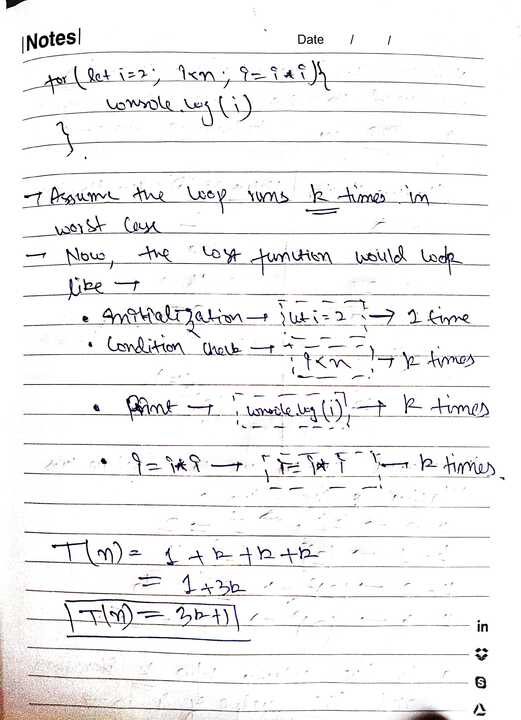 |Notes|
Date / /
for (let i=2; i<n; i=i*i){
console.log(i)
}
→ Assume the loop runs k times in
worst case
→ Now, the cost function would look
like →
• Initialization → let i=2 → 1 time
• Condition check → i<n → k times
• Print → console.log(i) → k times
• i=i*i → i=i*i → k times.
T(n) = 1 + k + k + k
= 1+3k
T(n) = 3k+1
in